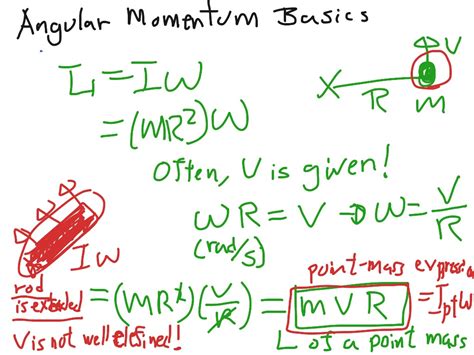 Angular Momentum Basics
L = Iω
= (mR²)ω
X R m V
Often, V is given!
ωR = V → ω = V/R
(rad/s)
Iω
rod is extended
V is not well defined!
= (mR²)(V/R) = mVR = I_pt ω
point-mass expression
L of a point mass